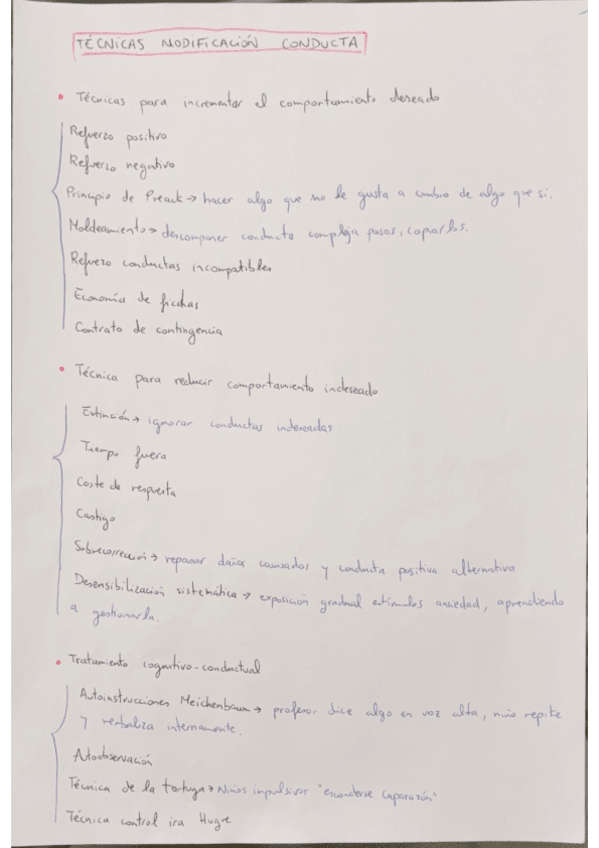 TÉCNICAS MODIFICACIÓN CONDUCTA
• Técnicas para incrementar el comportamiento deseado
Refuerzo positivo
Refuerzo negativo
Principio de Preack → hacer algo que no le gusta a cambio de algo que si.
Moldeamiento → descomponer conducta compleja pasos, copiarlos.
Refuerzo conductas incompatibles
Economía de fichas
Contrato de contingencia
• Técnica para reducir comportamiento indeseado
Extinción → ignorar conductas indeseadas
Tiempo fuera
Coste de respuesta
Castigo
Sobrecorrección → reparar daños causados y conducta positiva alternativa
Desensibilización sistemática → exposición gradual estímulos ansiedad, aprendiendo
a gestionarla.
• Tratamiento cognitivo-conductual
Autoinstrucciones Meichenbaum → profesor dice algo en voz alta, niño repite
y verbaliza internamente.
Autoobservación
Técnica de la tortuga → Niños impulsivos "esconderse caparazón"
Técnica control ira